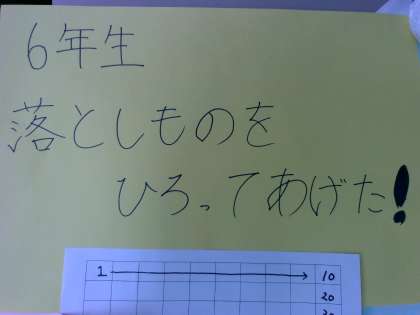 6年生
落としものを
ひろってあげた!
1 10
20
30